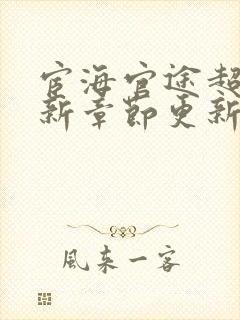 宦海官途超
新章节更新
風来一客